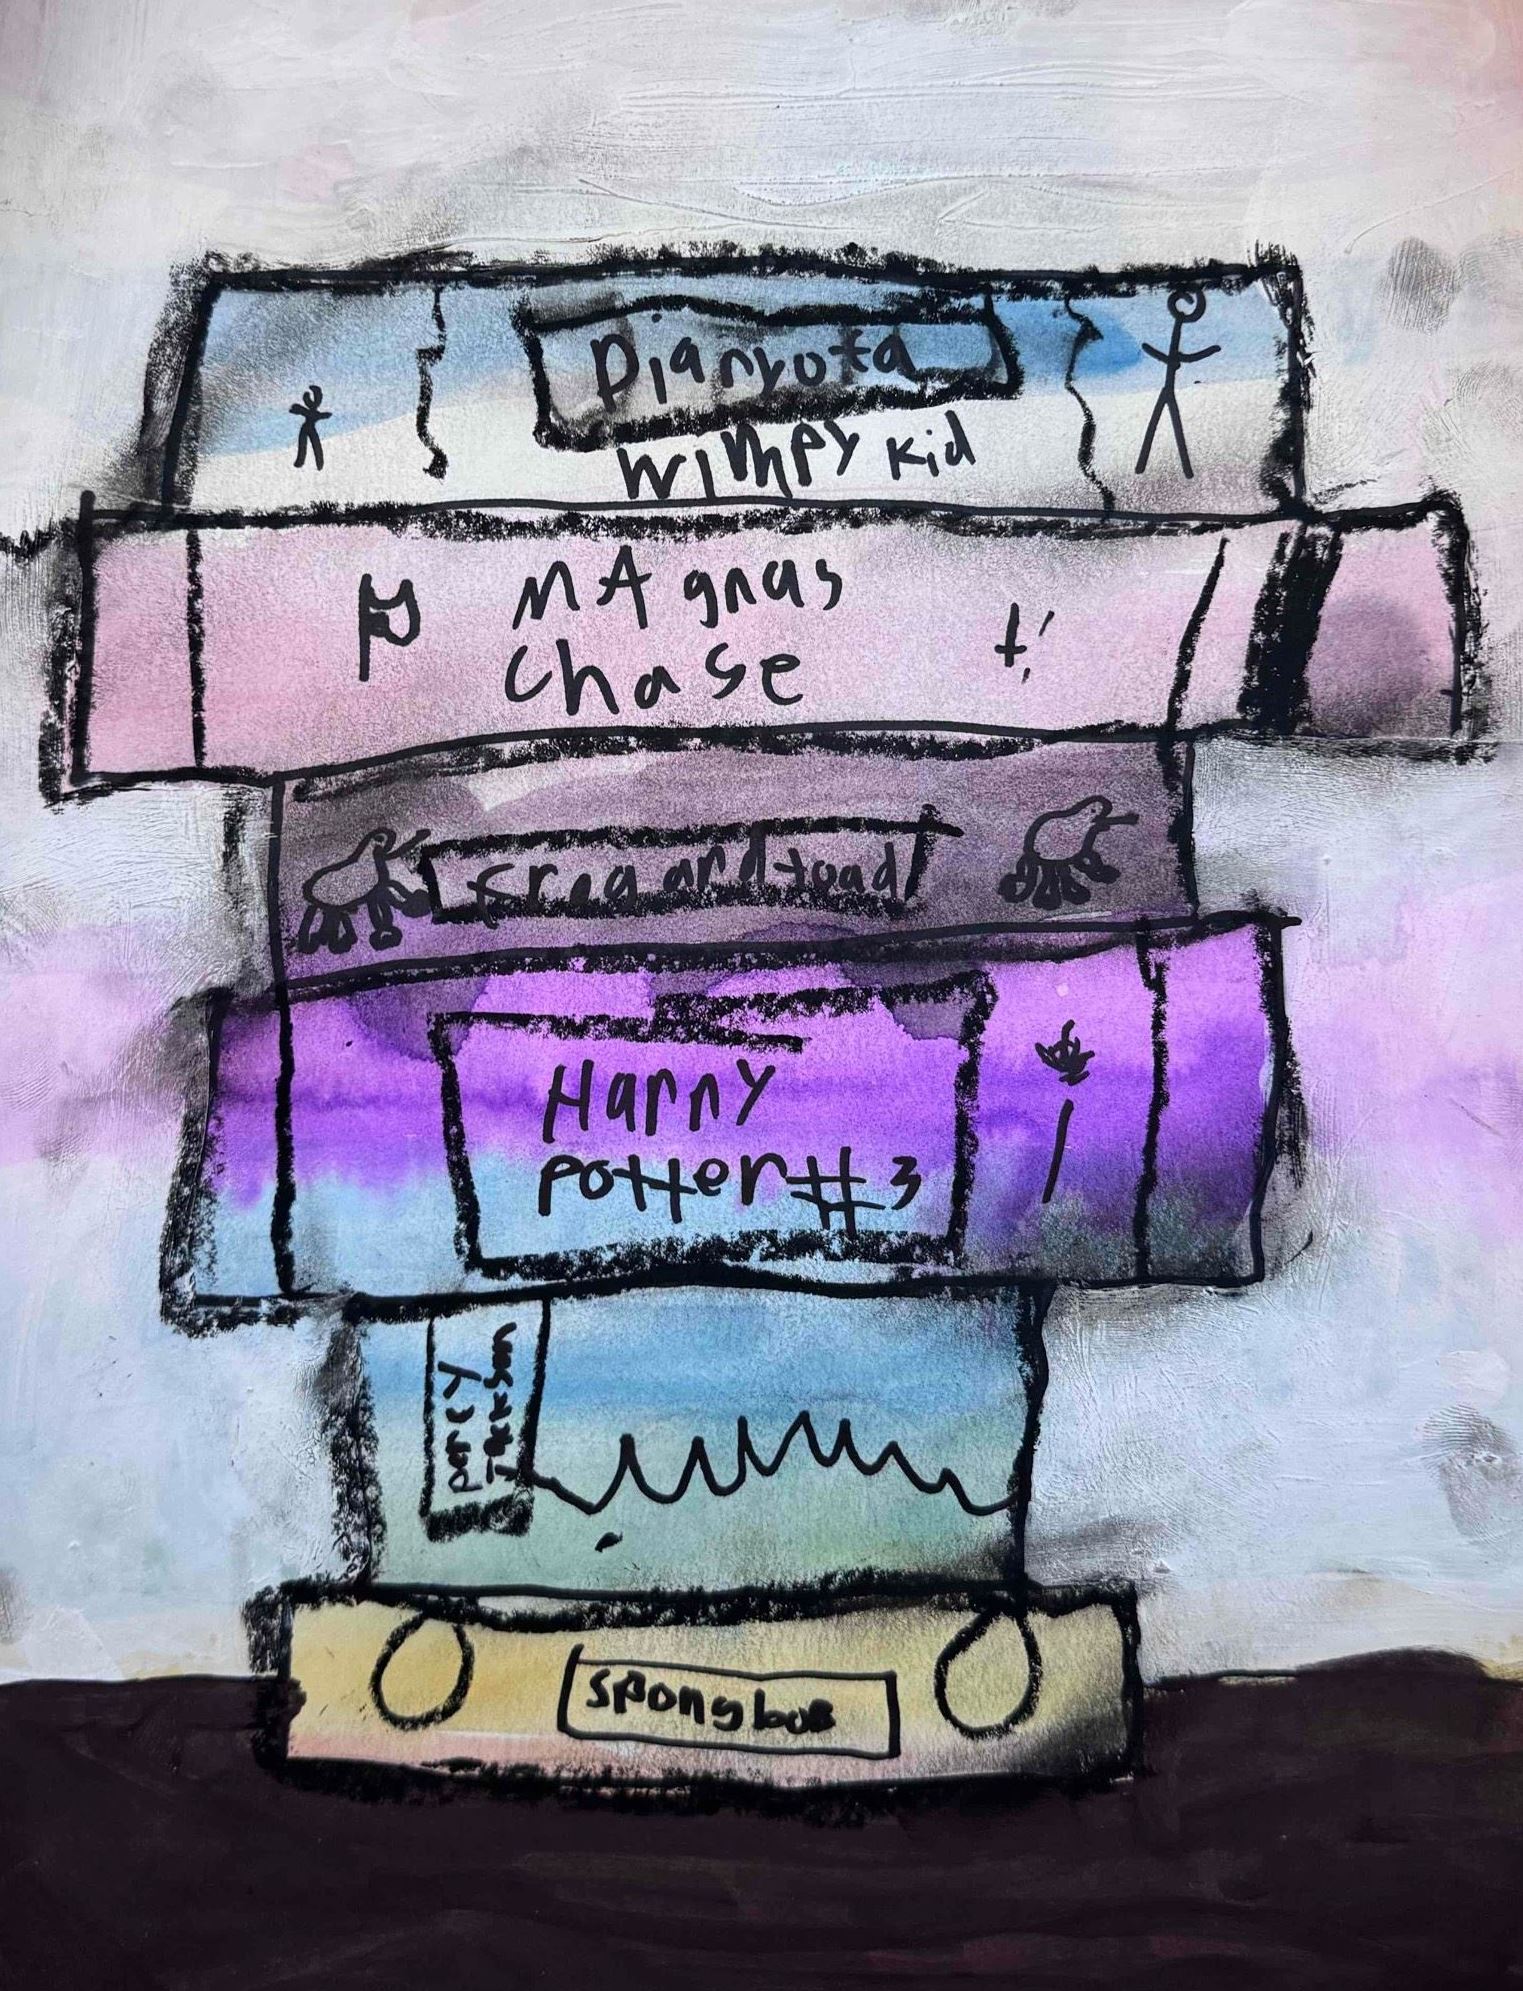 Diaryofa
Wimpy Kid
MAgnas
Chase
frog and toad
Harry
Potter #3
percy
Jackson
Spongbob